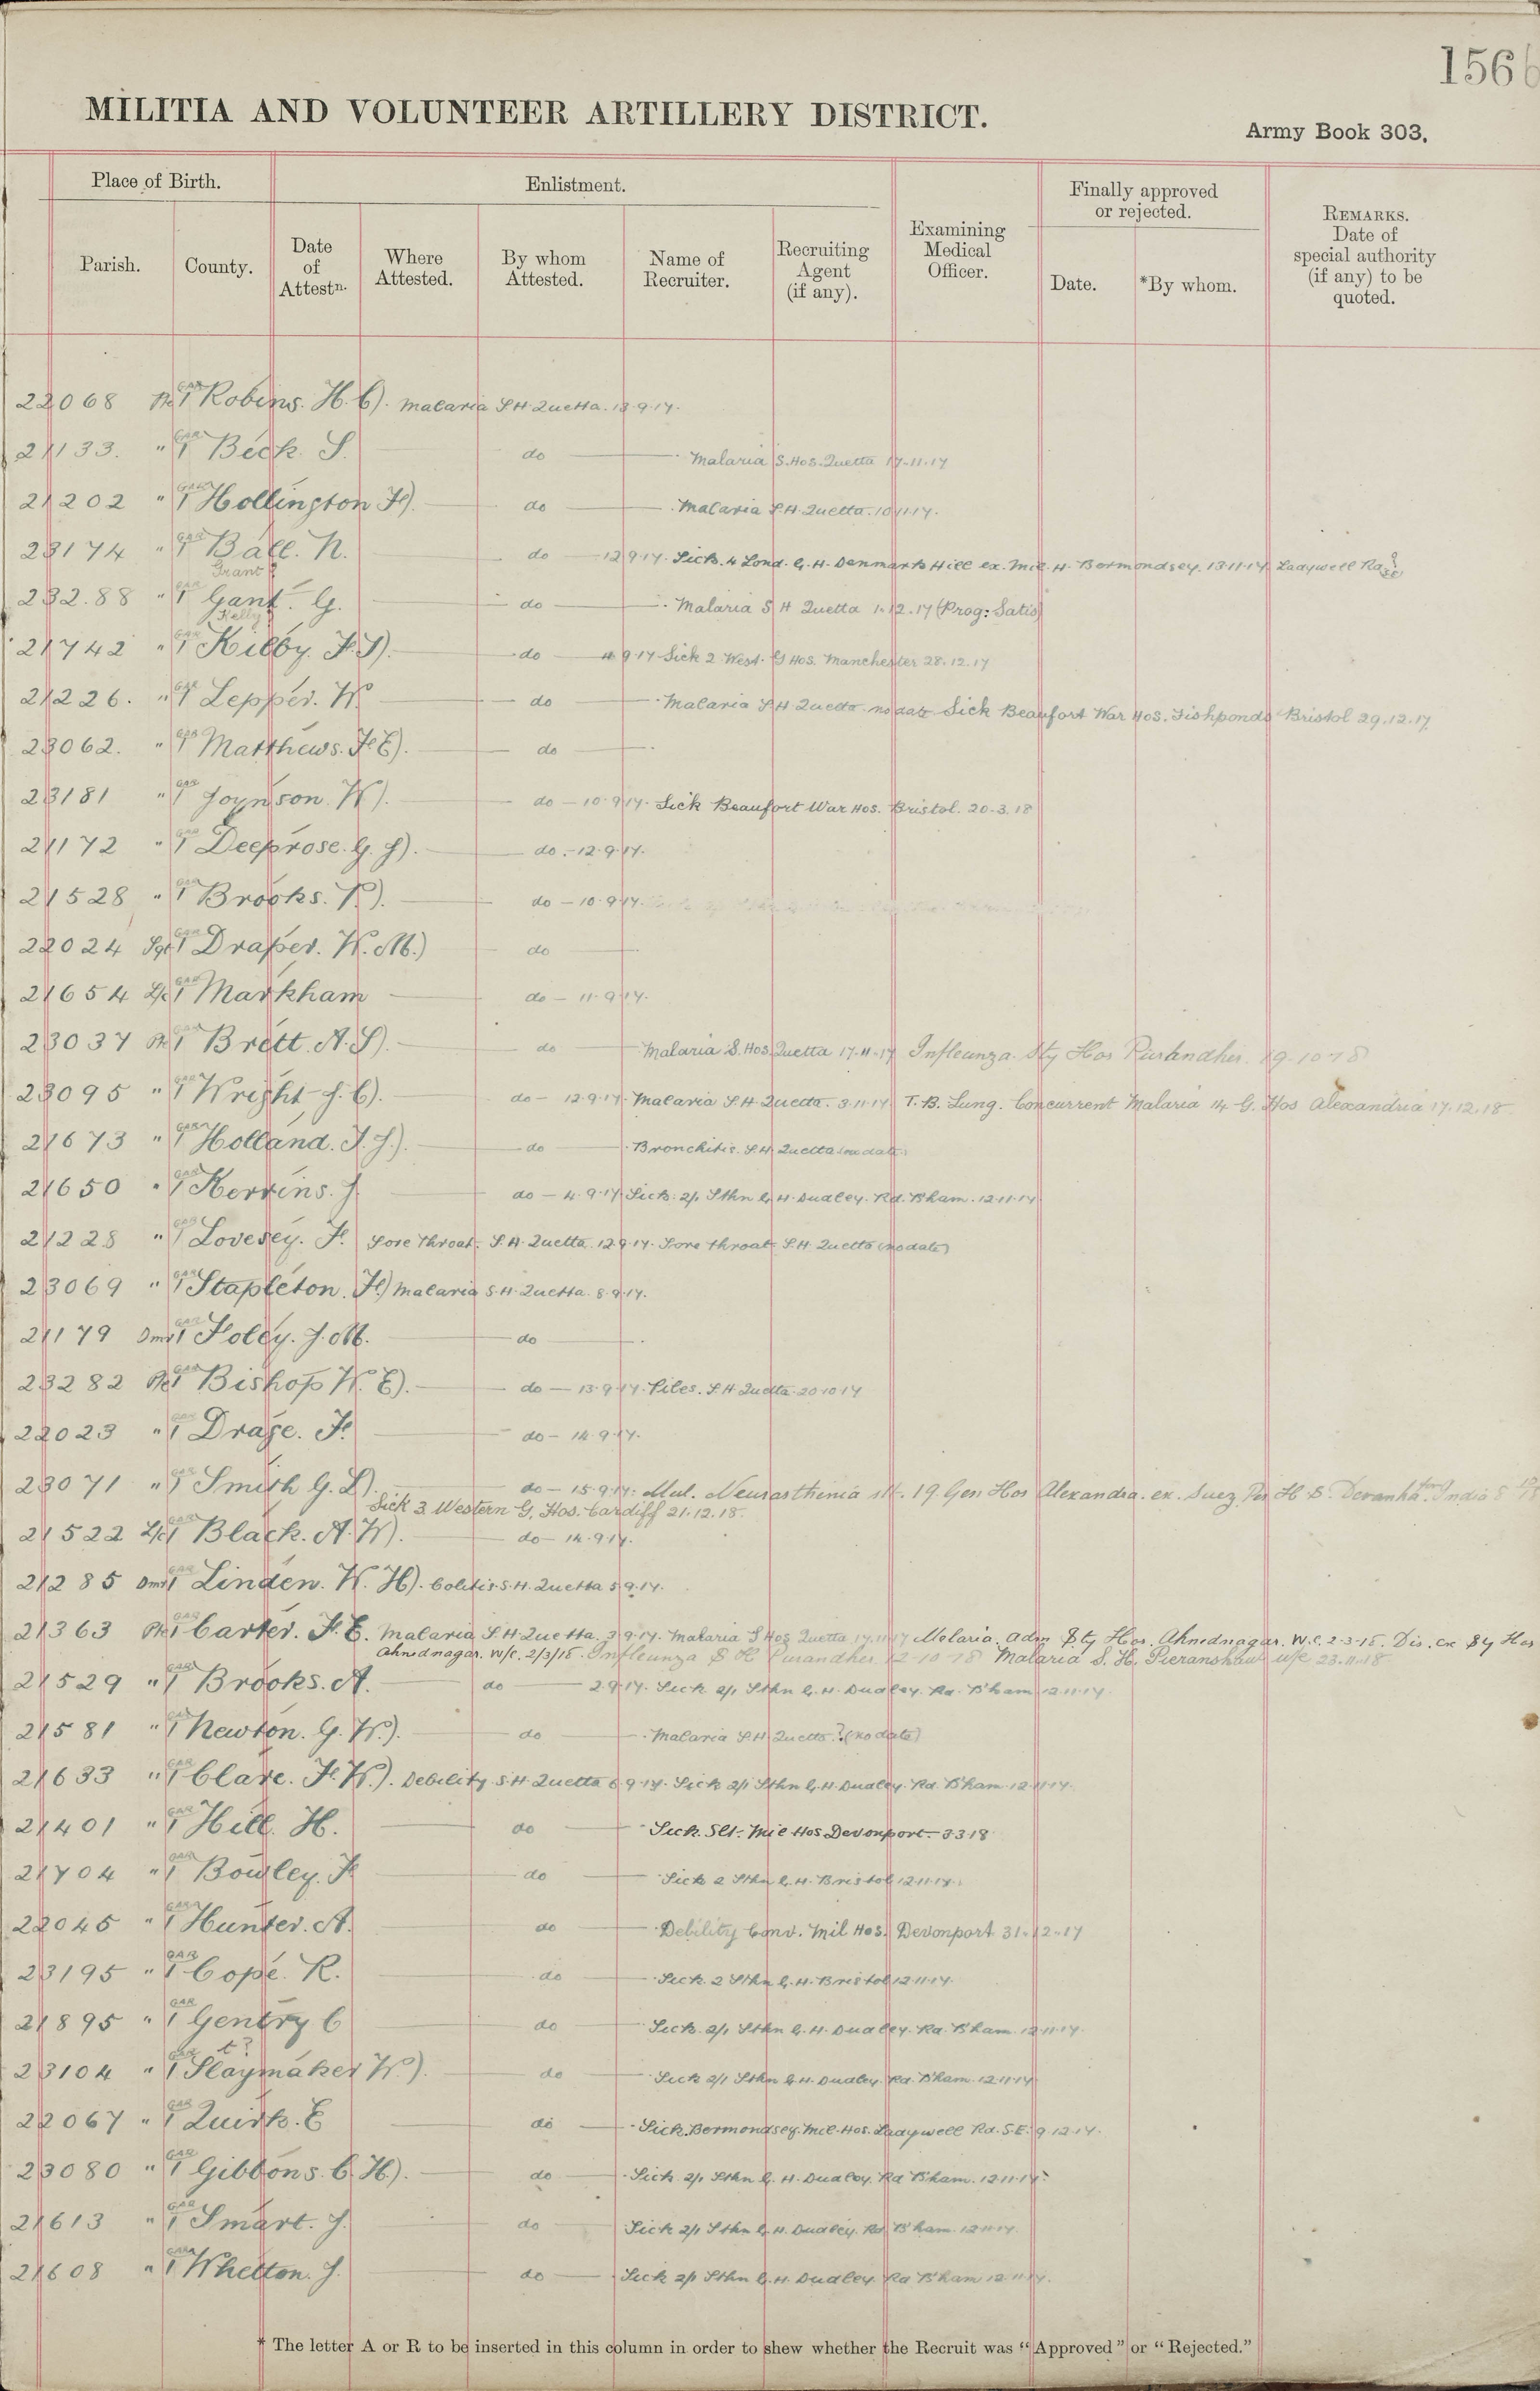 156
MILITIA AND VOLUNTEER ARTILLERY DISTRICT.
Army Book 303.
Place of Birth.
Enlistment.
Examining Medical Officer.
Finally approved or rejected.
REMARKS. Date of special authority (if any) to be quoted.
Parish.
County.
Date of Attestn.
Where Attested.
By whom Attested.
Name of Recruiter.
Recruiting Agent (if any).
Date.
*By whom.
22068 Pte Robins. H. C). Malaria S.H. Quetta. 13.9.17.
21133. " Beck. S. do Malaria S. Hos. Quetta 17-11-17
21202 " Hollington F). do Malaria S.H. Quetta. 10.11.17.
23174 " Ball. N. do 12.9.17. Sick. 4 Lond. G.H. Denmark Hill ex. Mil. H. Bermondsey. 13.11.17. Ladywell Rd
Grant?
232.88 " Gant. G. do Malaria S H Quetta 1.12.17 (Prog: Satis)
Kelly?
21742 " Kilby. F.J). do 4.9.17 Sick 2 West. G Hos. Manchester 28.12.17
21226. " Lepper. W. do Malaria S.H. Quetta. no date Sick Beaufort War Hos. Fishponds Bristol 29.12.17.
23062. " Matthews. F.E). do
23181 " Joynson. W). do - 10.9.17. Sick Beaufort War Hos. Bristol. 20.3.18
21172 " Deeprose. G. J). do. - 12.9.17.
21528 " Brooks. W). do - 10.9.17.
22024 Sgt Draper. W. M.) do
21654 Markham do - 11.9.17.
23037 Pte Brett. A. S). do Malaria S. Hos. Quetta 17.11.17 Infleunza. Sty Hos Purandher. 19-10-18
23095 " Wright J. C). do - 12.9.17. Malaria S.H. Quetta. 3.11.17 T.B. Lung. Concurrent Malaria 14 G. Hos Alexandria 17.12.18
21673 " Holland. J.). do Bronchitis. S.H. Quetta (no date)
21650 " Kerrins. J. do - 4.9.17 Sick. 2/1 Sthn G.H. Dudley. Rd. B'ham. 12.11.17
21228 " Lovesey. F. Sore Throat. S.H. Quetta. 12.9.17. Sore throat. S.H. Quetta (no date)
23069 " Stapleton. F) Malaria S.H. Quetta. 8.9.17.
21179 Dmr Foley. J. M. do
23282 Pte Bishop W. E). do - 13.9.17. Piles. S.H. Quetta. 20.10.17
22023 " Drage. F. do - 14.9.17.
23071 " Smith G. L). do - 15.9.17: Mul. Neurasthinia 19 Gen Hos Alexandra. ex. Suez Per H. S. Devanha. India
Sick 3 Western G. Hos. Cardiff 21.12.18.
21522 Black. A. W). do - 14.9.17.
21285 Dmr Linden. W. H). Colitis. S.H. Quetta 5.9.17.
21363 Pte Carter. F. E. Malaria S.H. Quetta. 3.9.17. Malaria S Hos Quetta 17.11.17 Malaria. adm Sty Hos. Ahmednagar. W.E. 2-3-18. Dis. ex Sty Hos
Ahmednagar. W/E. 2/3/18. Infleunza S H Purandher 12-10-18 Malaria S. H. 23.11.18
21529 " Brooks. A. do 2.9.17. Sick 2/1 Sthn G.H. Dudley. Rd. B'ham 12.11.17.
21581 " Newton. G. W.). do Malaria S.H. Quetta. ? (no date)
21633 " Clare. F. W.). Debility S.H. Quetta 6.9.17. Sick 2/1 Sthn G.H. Dudley. Rd. B'ham 12.11.17.
21401 " Hill. H. do Sick. Mil Hos Devonport. 3.3.18
21704 " Bowley. F do Sick 2 Sthn G.H. Bristol 12.11.17.
22045 " Hunter. A. do Debility Conv. Mil Hos. Devonport 31.12.17
23195 " Cope. R. do Sick. 2 Sthn G.H. Bristol 12.11.17.
21895 " Gentry C do Sick. 2/1 Sthn G.H. Dudley. Rd. B'ham. 12.11.17.
t?
23104 " Slaymaker W.). do Sick 2/1 Sthn G.H. Dudley. Rd. B'ham. 12.11.17
22067 " Quirk. E do Sick. Bermondsey. Mil. Hos. Ladywell Rd. S.E. 9.12.17.
23080 " Gibbons. C. H.). do Sick. 2/1 Sthn G. H. Dudley. Rd B'ham. 12.11.17.
21613 " Smart. J. do Sick 2/1 Sthn G.H. Dudley. Rd B'ham. 12.11.17.
21608 " Whelton. J. do Sick 2/1 Sthn G.H. Dudley. Rd B'ham 12.11.17.
* The letter A or R to be inserted in this column in order to shew whether the Recruit was "Approved" or "Rejected."